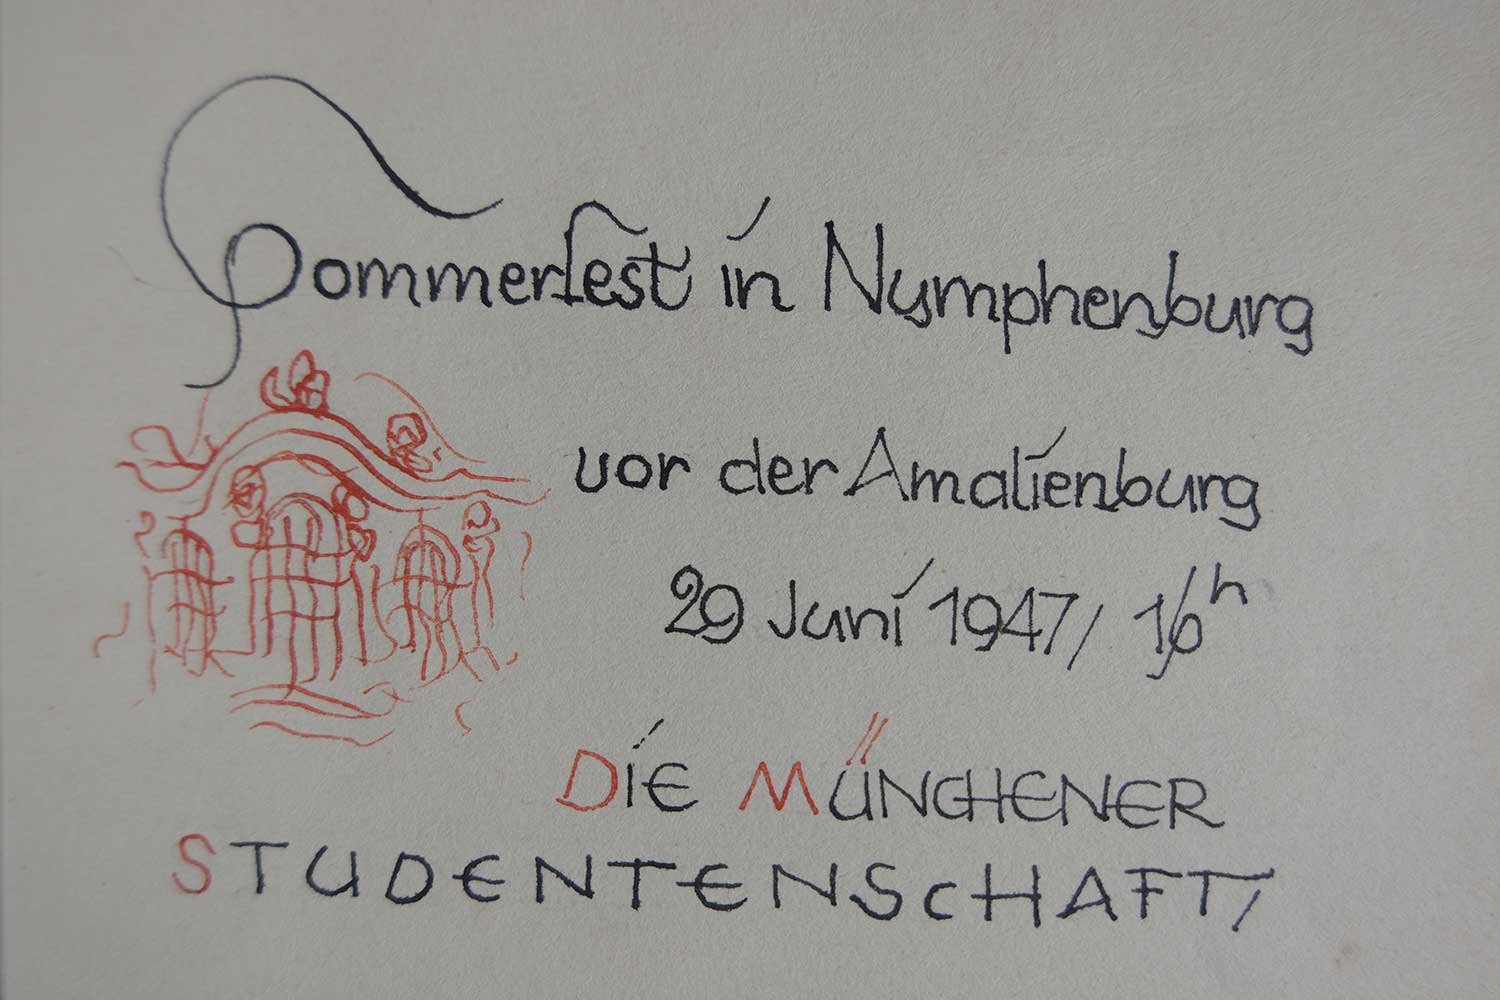 Sommerfest in Nymphenburg
vor der Amalienburg
29 Juni 1947/ 16h
DIE MÜNCHENER
STUDENTENSCHAFT/